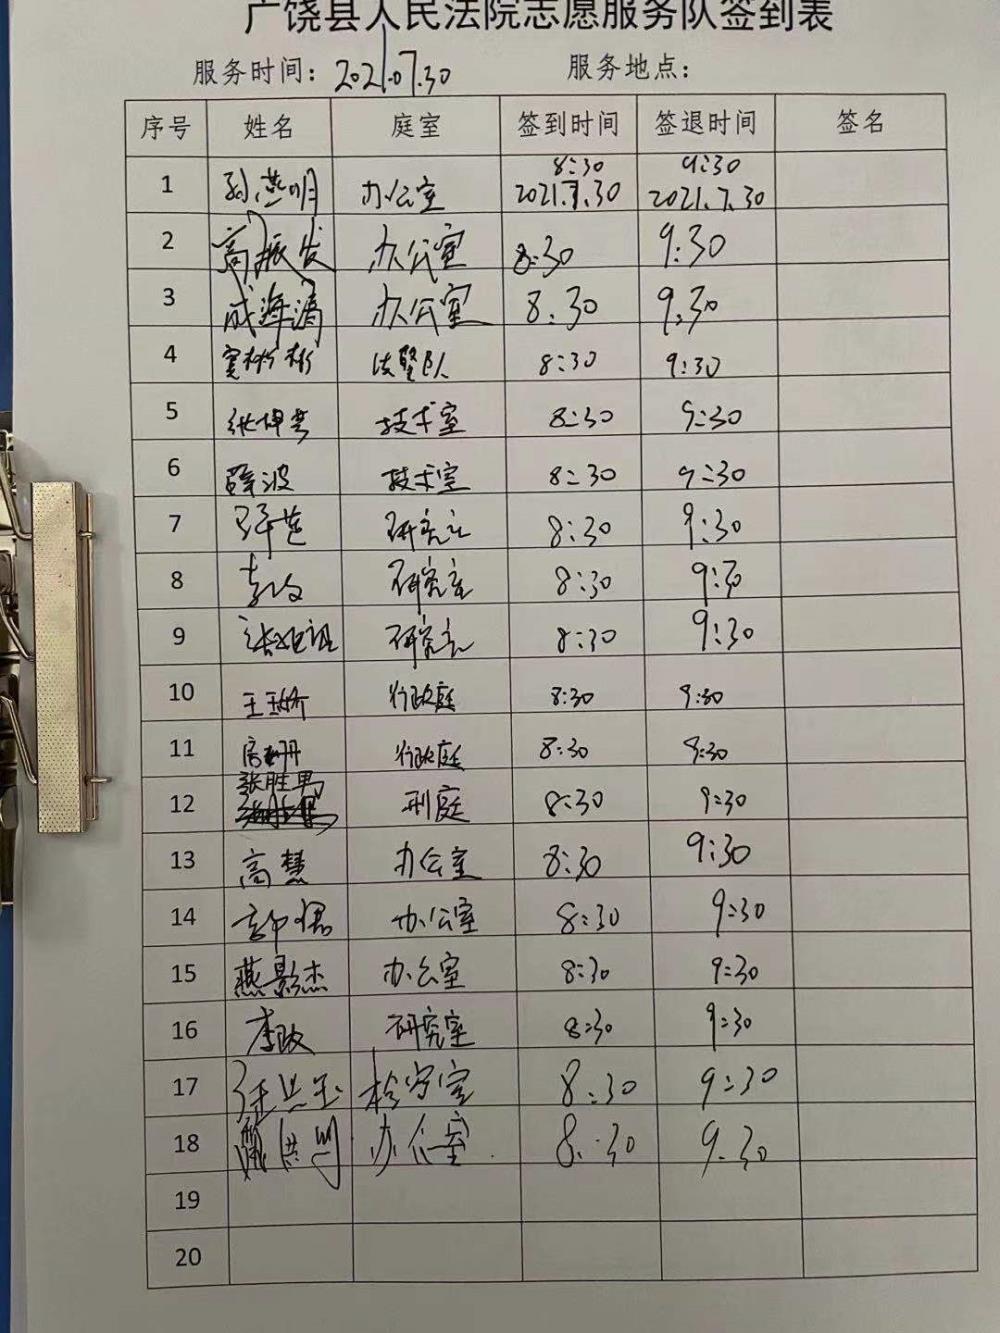 广饶县人民法院志愿服务队签到表
服务时间：2021.07.30 服务地点：
序号 姓名 庭室 签到时间 签退时间 签名
1 孙燕明 办公室 8:30 2021.7.30 9:30 2021.7.30
2 高振发 办公室 8:30 9:30
3 成海涛 办公室 8:30 9:30
4 窦彬彬 法警队 8:30 9:30
5 技术室 8:30 9:30
6 薛波 技术室 8:30 9:30
7 研究室 8:30 9:30
8 研究室 8:30 9:30
9 研究室 8:30 9:30
10 王玉娇 行政庭 8:30 9:30
11 行政庭 8:30 9:30
12 张胜男 刑庭 8:30 9:30
13 高慧 办公室 8:30 9:30
14 办公室 8:30 9:30
15 燕影杰 办公室 8:30 9:30
16 李政 研究室 8:30 9:30
17 8:30 9:30
18 办公室 8:30 9.30
19
20